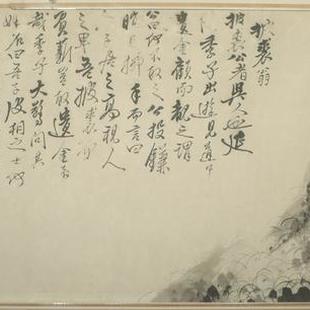 披裘翁
披裘公者吳人也延
陵季子出遊見道中
遺金顧而覩之謂
公何不取之公投鐮
瞋目拂手而言曰
子居之高視人
之卑吾披裘而
負薪豈取遺金者
哉季子大驚問其
姓名曰吾子皮相之士何